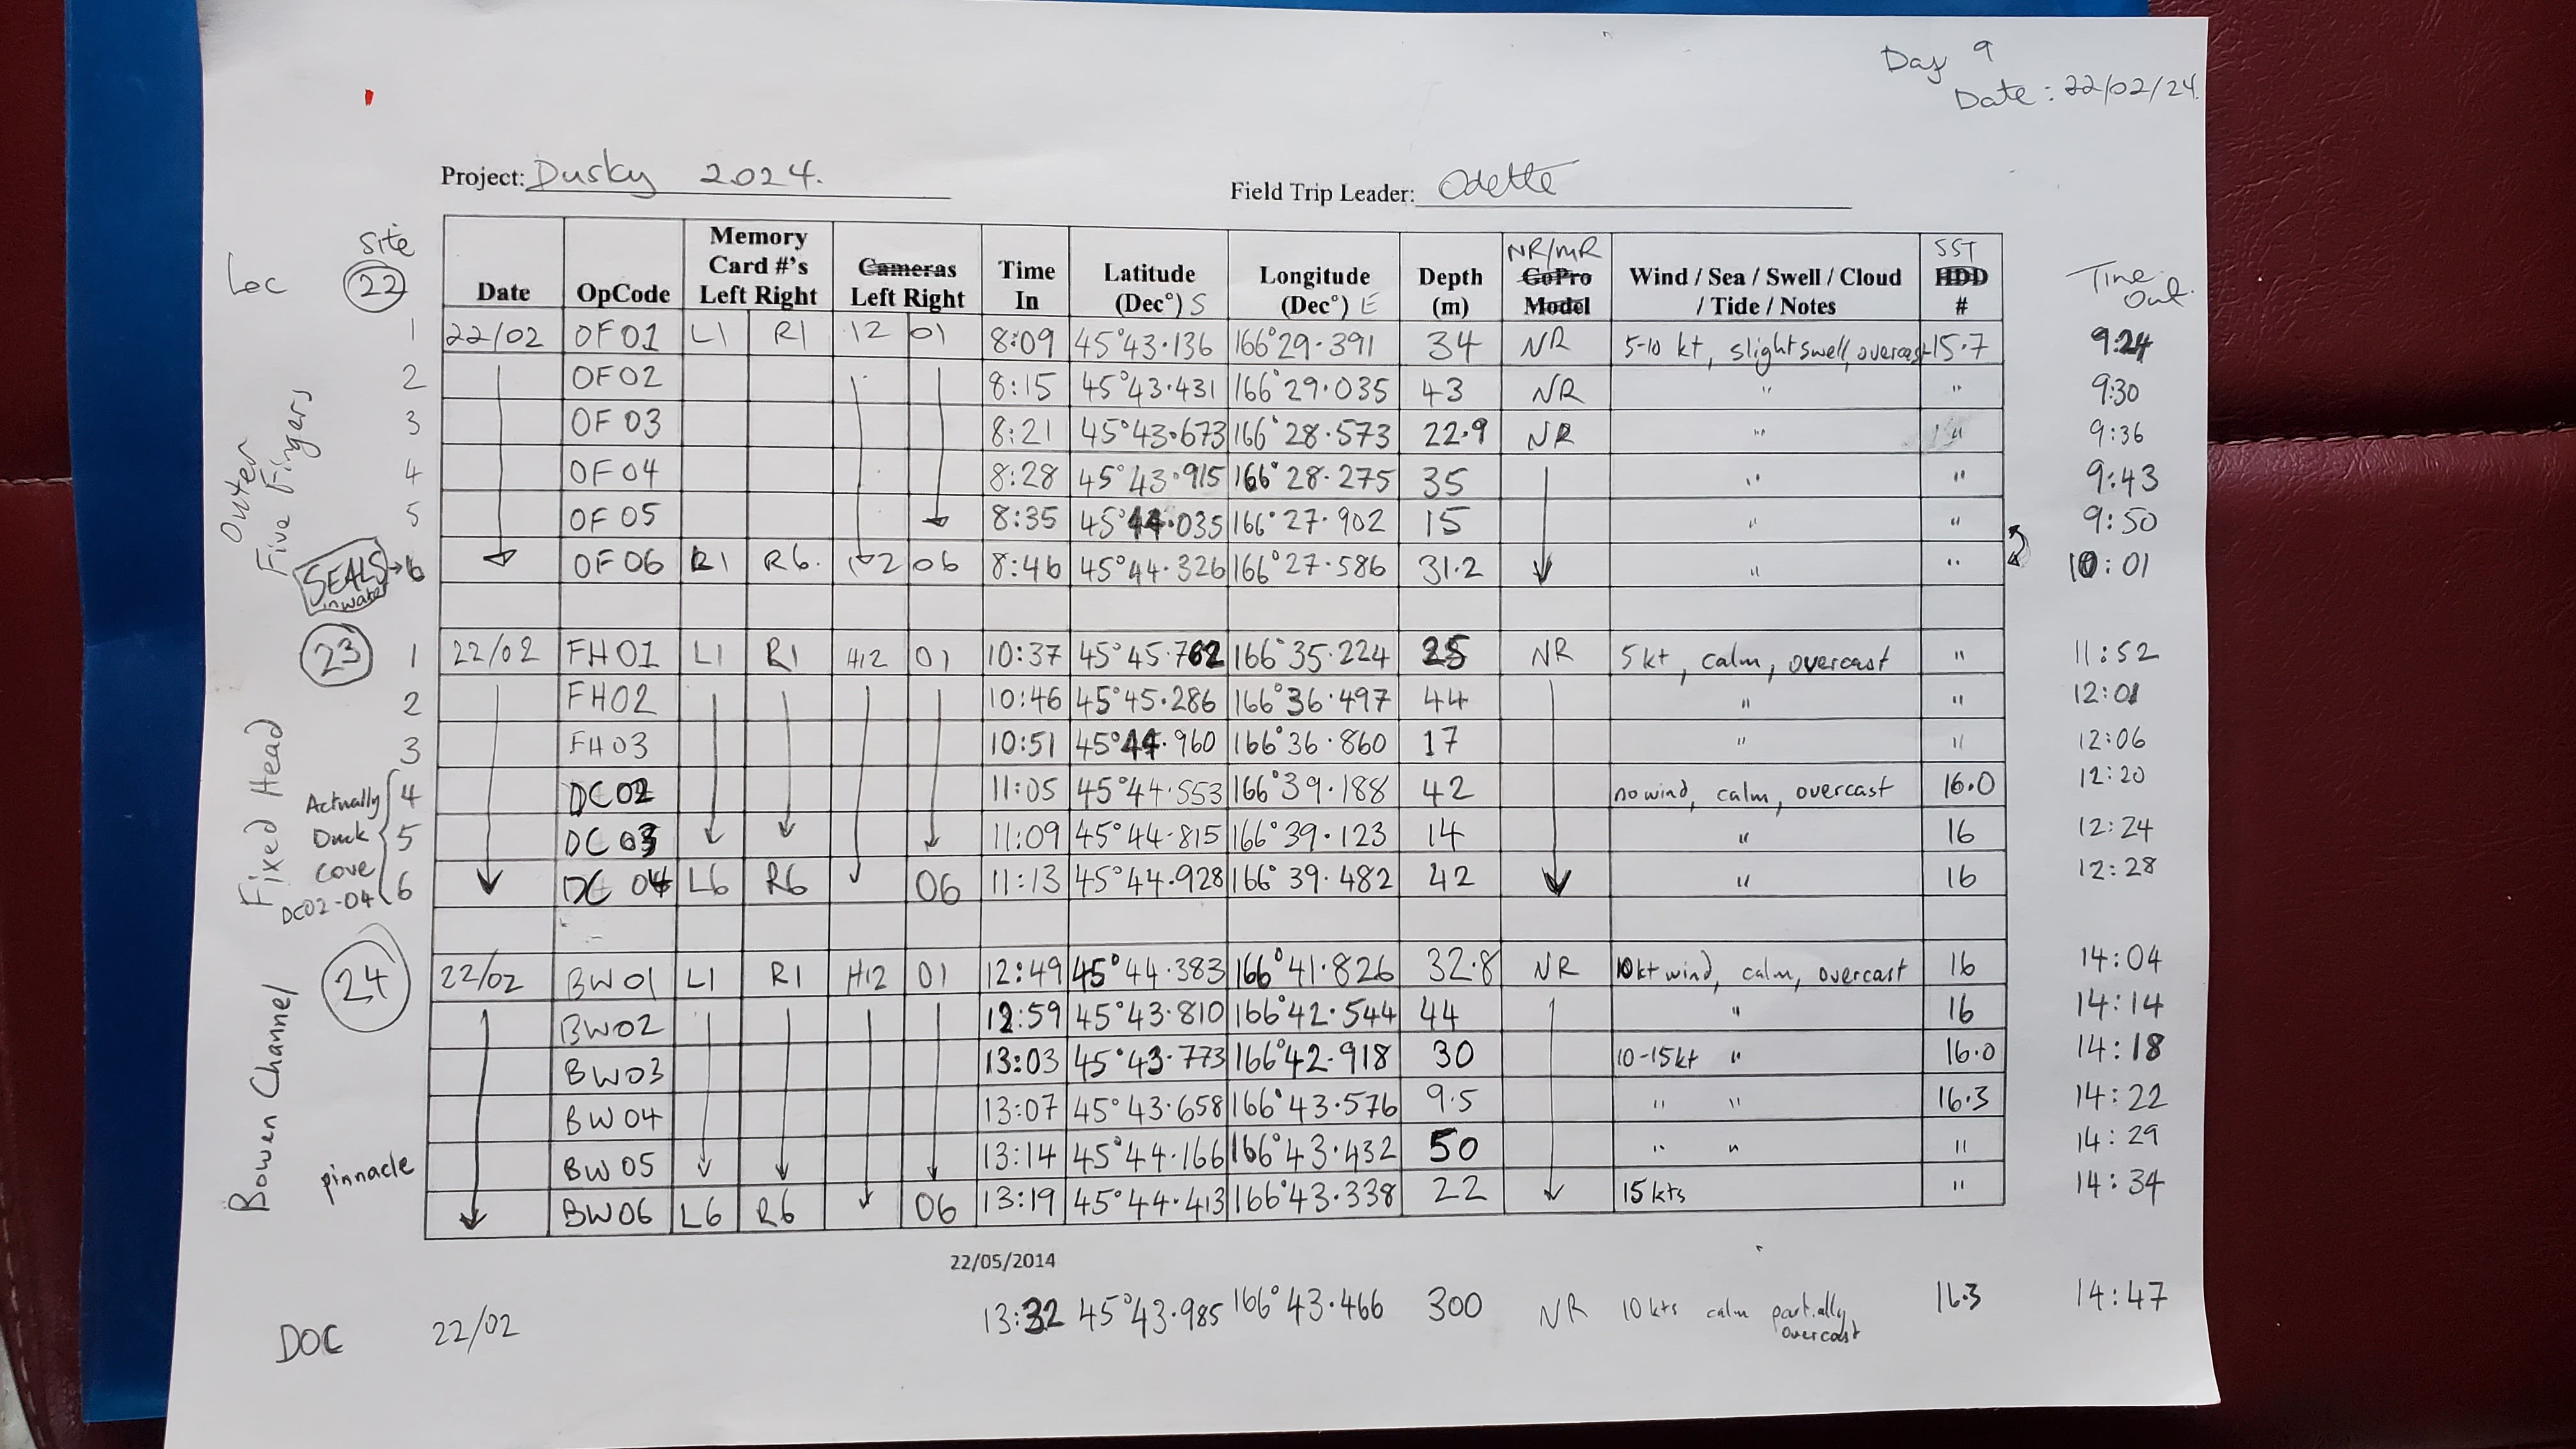 Day 9
Date: 22/02/24.
Project: Dusky 2024.
Field Trip Leader: Odette
Loc Site Date OpCode Memory Card #'s Left Right Cameras Left Right Time In Latitude (Dec°) S Longitude (Dec°) E Depth (m) NR/MR GoPro Model Wind / Sea / Swell / Cloud / Tide / Notes SST HDD # Time Out.
22
Outer Five Fingers
1 22/02 OF01 L1 R1 12 01 8:09 45°43.136 166°29.391 34 NR 5-10 kt, slight swell, overcast 15.7 9:24
2 OF02 8:15 45°43.431 166°29.035 43 NR " " 9:30
3 OF03 8:21 45°43.673 166°28.573 22.9 NR " " 9:36
4 OF04 8:28 45°43.915 166°28.275 35 " " 9:43
5 OF05 8:35 45°44.035 166°27.902 15 " " 9:50
SEALS in water → 6 OF06 R6. 06 8:46 45°44.326 166°27.586 31.2 " " 10:01
23
Fixed Head
1 22/02 FH01 L1 R1 H12 01 10:37 45°45.762 166°35.224 25 NR 5kt, calm, overcast " 11:52
2 FH02 10:46 45°45.286 166°36.497 44 " " 12:01
3 FH03 10:51 45°44.960 166°36.860 17 " " 12:06
Actually Duck Cove DC02-04
4 DC02 11:05 45°44.553 166°39.188 42 no wind, calm, overcast 16.0 12:20
5 DC03 11:09 45°44.815 166°39.123 14 " 16 12:24
6 DC04 L6 R6 06 11:13 45°44.928 166°39.482 42 " 16 12:28
24
Bowen Channel
22/02 BW01 L1 R1 H12 01 12:49 45°44.383 166°41.826 32.8 NR 10kt wind, calm, overcast 16 14:04
BW02 12:59 45°43.810 166°42.544 44 " 16 14:14
BW03 13:03 45°43.773 166°42.918 30 10-15kt " 16.0 14:18
BW04 13:07 45°43.658 166°43.576 9.5 " " 16.3 14:22
pinnacle BW05 13:14 45°44.166 166°43.432 50 " " " 14:29
BW06 L6 R6 06 13:19 45°44.413 166°43.338 22 15kts " 14:34
22/05/2014
DOC 22/02 13:32 45°43.985 166°43.466 300 NR 10kts calm partially overcast 16.3 14:47